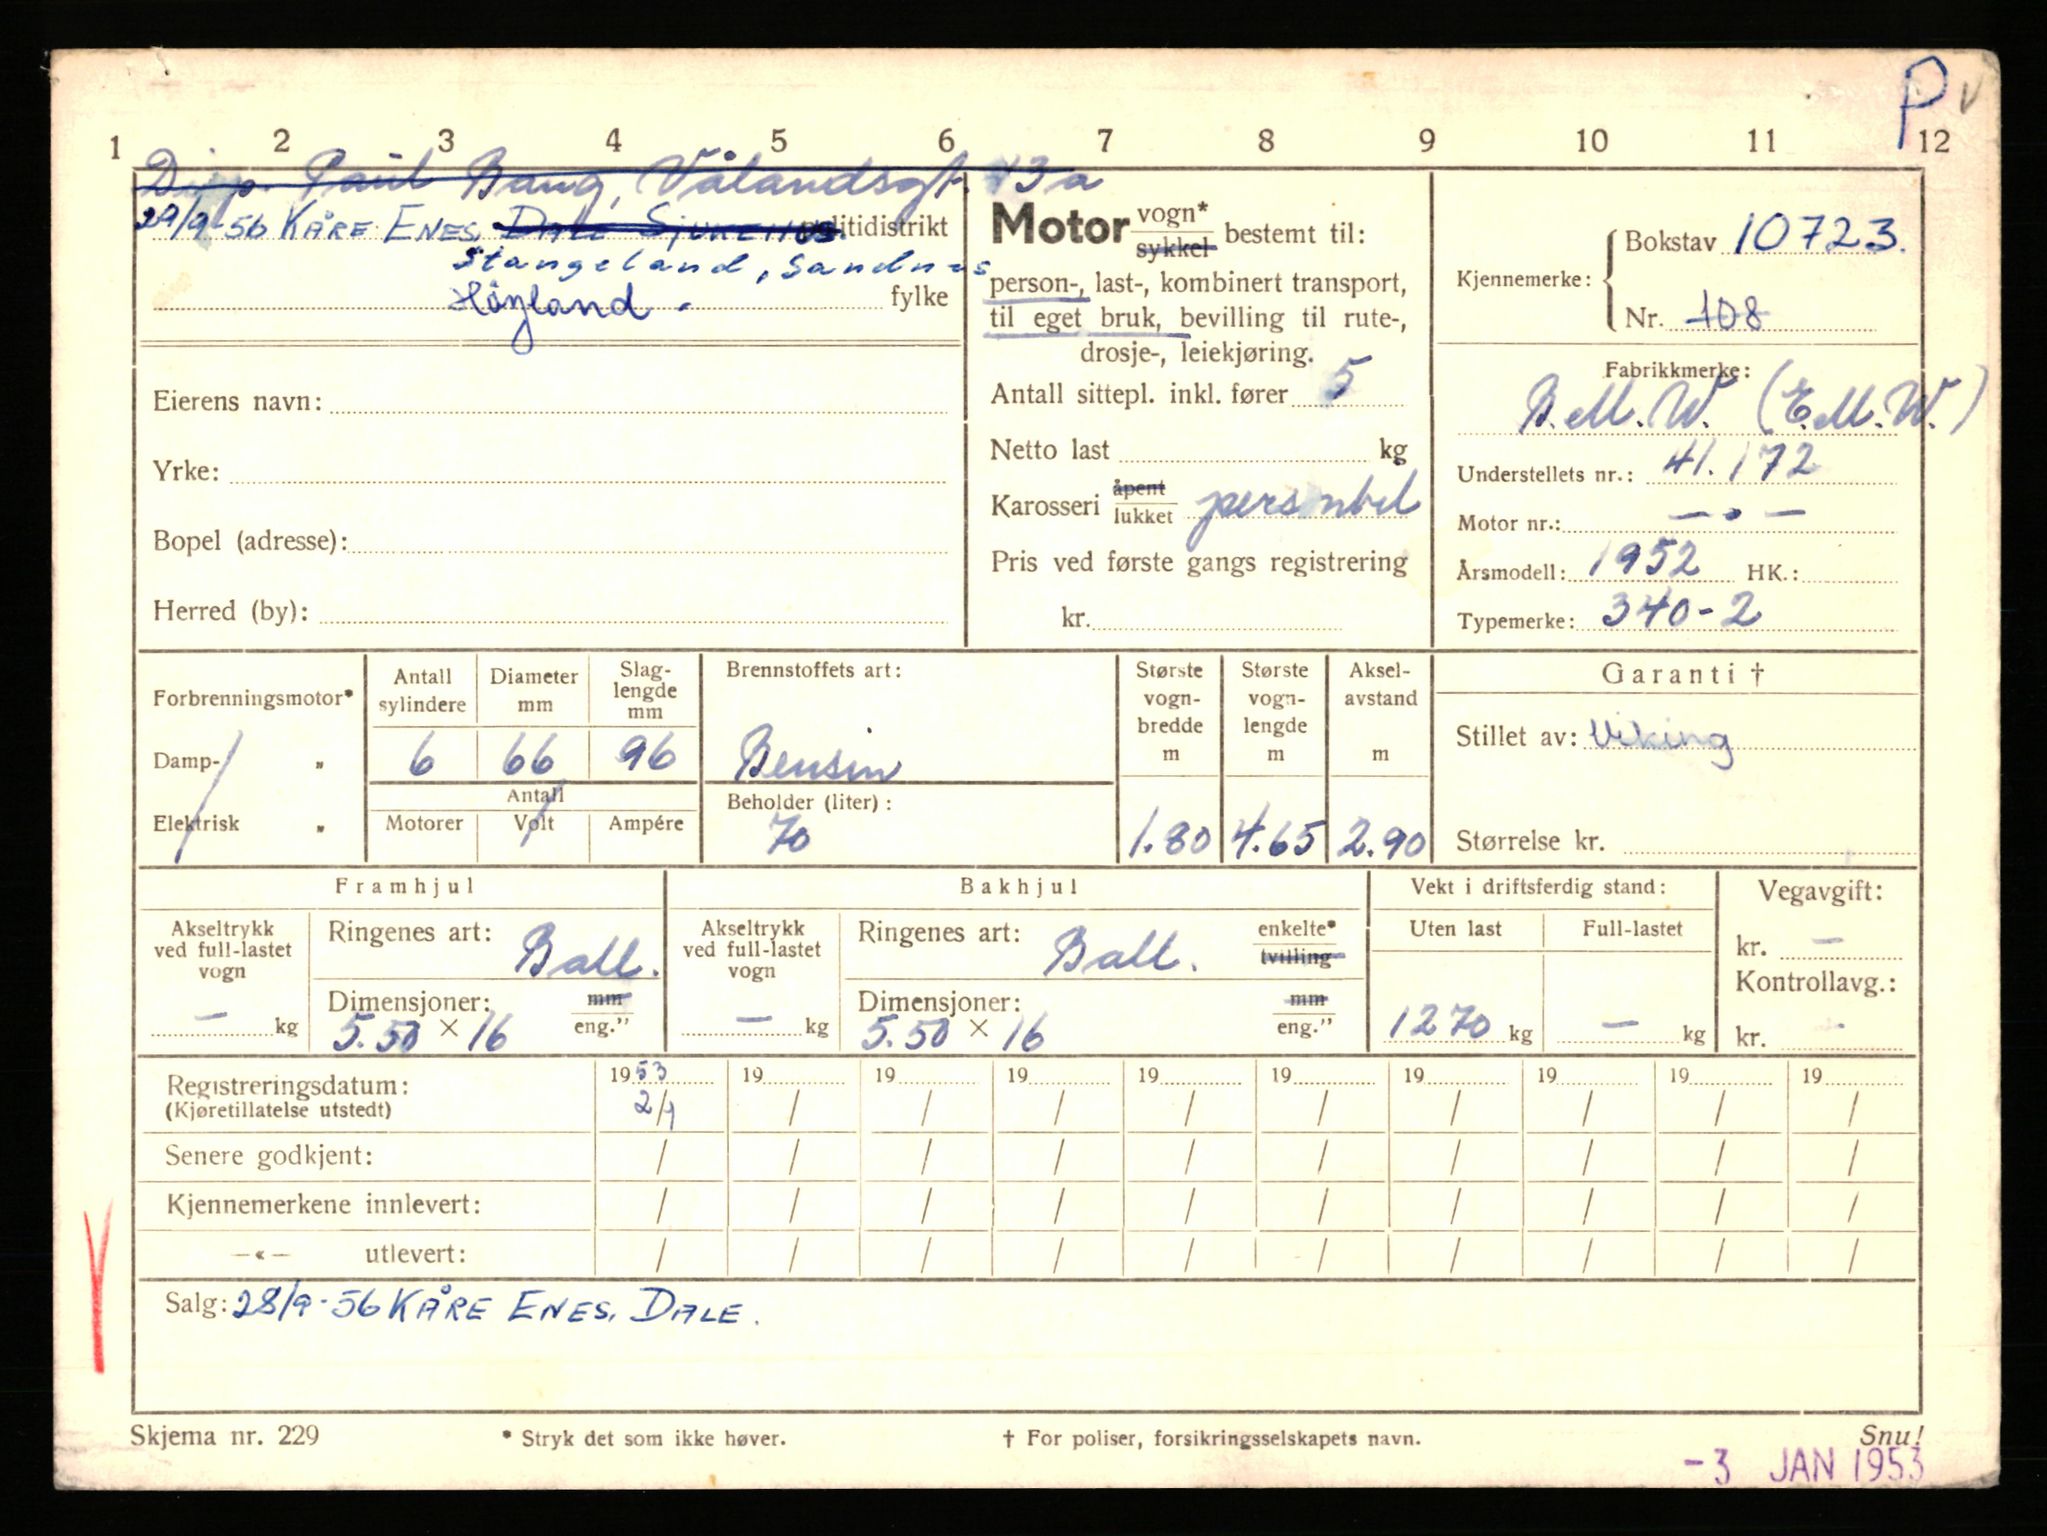 P v
1 2 3 4 5 6 7 8 9 10 11 12
Disp. Paul Bang, Vålandsgt. 43a
29/9-56 KÅRE ENES. DALE SJUKEHUS. politidistrikt
Stangeland, Sandnes
Höyland. fylke
Eierens navn:
Yrke:
Bopel (adresse):
Herred (by):
Motor vogn* sykkel bestemt til:
person-, last-, kombinert transport,
til eget bruk, bevilling til rute-,
drosje-, leiekjøring.
Antall sittepl. inkl. fører 5
Netto last kg
Karosseri åpent lukket personbil
Pris ved første gangs registrering
kr.
Kjennemerke: Bokstav 10723.
Nr. 108
Fabrikkmerke:
B.M.W. (E.M.W.)
Understellets nr.: 41.172
Motor nr.: — • —
Årsmodell: 1952 HK.:
Typemerke: 340-2
Forbrenningsmotor*
Damp- „
Elektrisk „
Antall sylindere 6
Diameter mm 66
Slag-lengde mm 96
Antall
Motorer Volt Ampére
Brennstoffets art:
Bensin
Beholder (liter):
70
Største vogn-bredde m 1.80
Største vogn-lengde m 4.65
Aksel-avstand m 2.90
Garanti †
Stillet av: Viking
Størrelse kr.
Framhjul
Akseltrykk ved full-lastet vogn — kg
Ringenes art: Ball.
Dimensjoner: mm
5.50 × 16 eng.”
Bakhjul
Akseltrykk ved full-lastet vogn — kg
Ringenes art: Ball. enkelte* tvilling
Dimensjoner: mm
5.50 × 16 eng.”
Vekt i driftsferdig stand:
Uten last Full-lastet
1270 kg — kg
Vegavgift:
kr. —
Kontrollavg.:
kr. -
Registreringsdatum: 1953 19 19 19 19 19 19 19 19 19
(Kjøretillatelse utstedt) 2/1 / / / / / / / / /
Senere godkjent: / / / / / / / / / /
Kjennemerkene innlevert: / / / / / / / / / /
—«— utlevert: / / / / / / / / / /
Salg: 28/9-56 KÅRE ENES, DALE.
Skjema nr. 229 * Stryk det som ikke høver. † For poliser, forsikringsselskapets navn. Snu!
-3 JAN 1953